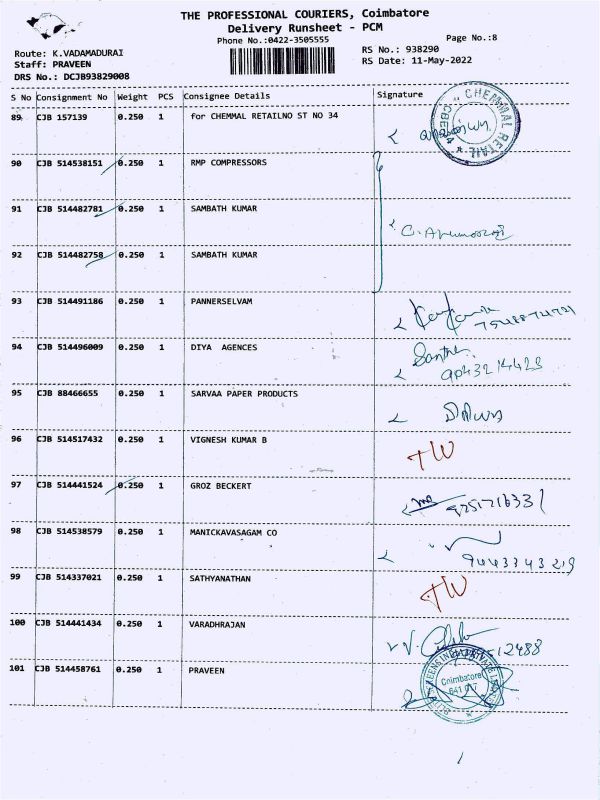 THE PROFESSIONAL COURIERS, Coimbatore
Delivery Runsheet - PCM
Phone No.:0422-3505555
Page No.:8
Route: K.VADAMADURAI
Staff: PRAVEEN
DRS No.: DCJB93829008
RS No.: 938290
RS Date: 11-May-2022
S No Consignment No Weight PCS Consignee Details Signature
89 CJB 157139 0.250 1 for CHEMMAL RETAILNO ST NO 34
CHEMMAL RETAIL CBE
90 CJB 514538151 0.250 1 RMP COMPRESSORS
91 CJB 514482781 0.250 1 SAMBATH KUMAR
92 CJB 514482758 0.250 1 SAMBATH KUMAR
93 CJB 514491186 0.250 1 PANNERSELVAM
94 CJB 514496009 0.250 1 DIYA AGENCES
95 CJB 88466655 0.250 1 SARVAA PAPER PRODUCTS
96 CJB 514517432 0.250 1 VIGNESH KUMAR B
97 CJB 514441524 0.250 1 GROZ BECKERT
98 CJB 514538579 0.250 1 MANICKAVASAGAM CO
9443343219
99 CJB 514337021 0.250 1 SATHYANATHAN
100 CJB 514441434 0.250 1 VARADHRAJAN
101 CJB 514458761 0.250 1 PRAVEEN
Coimbatore